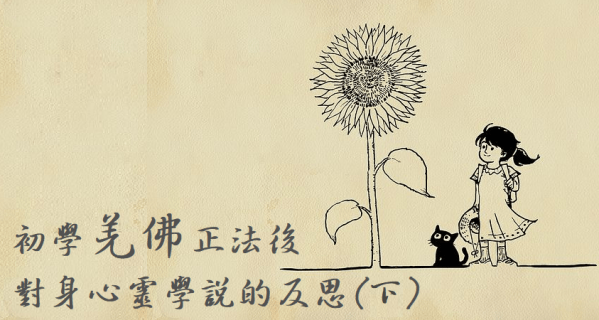 初學羌佛正法後
對身心靈學說的反思(下)